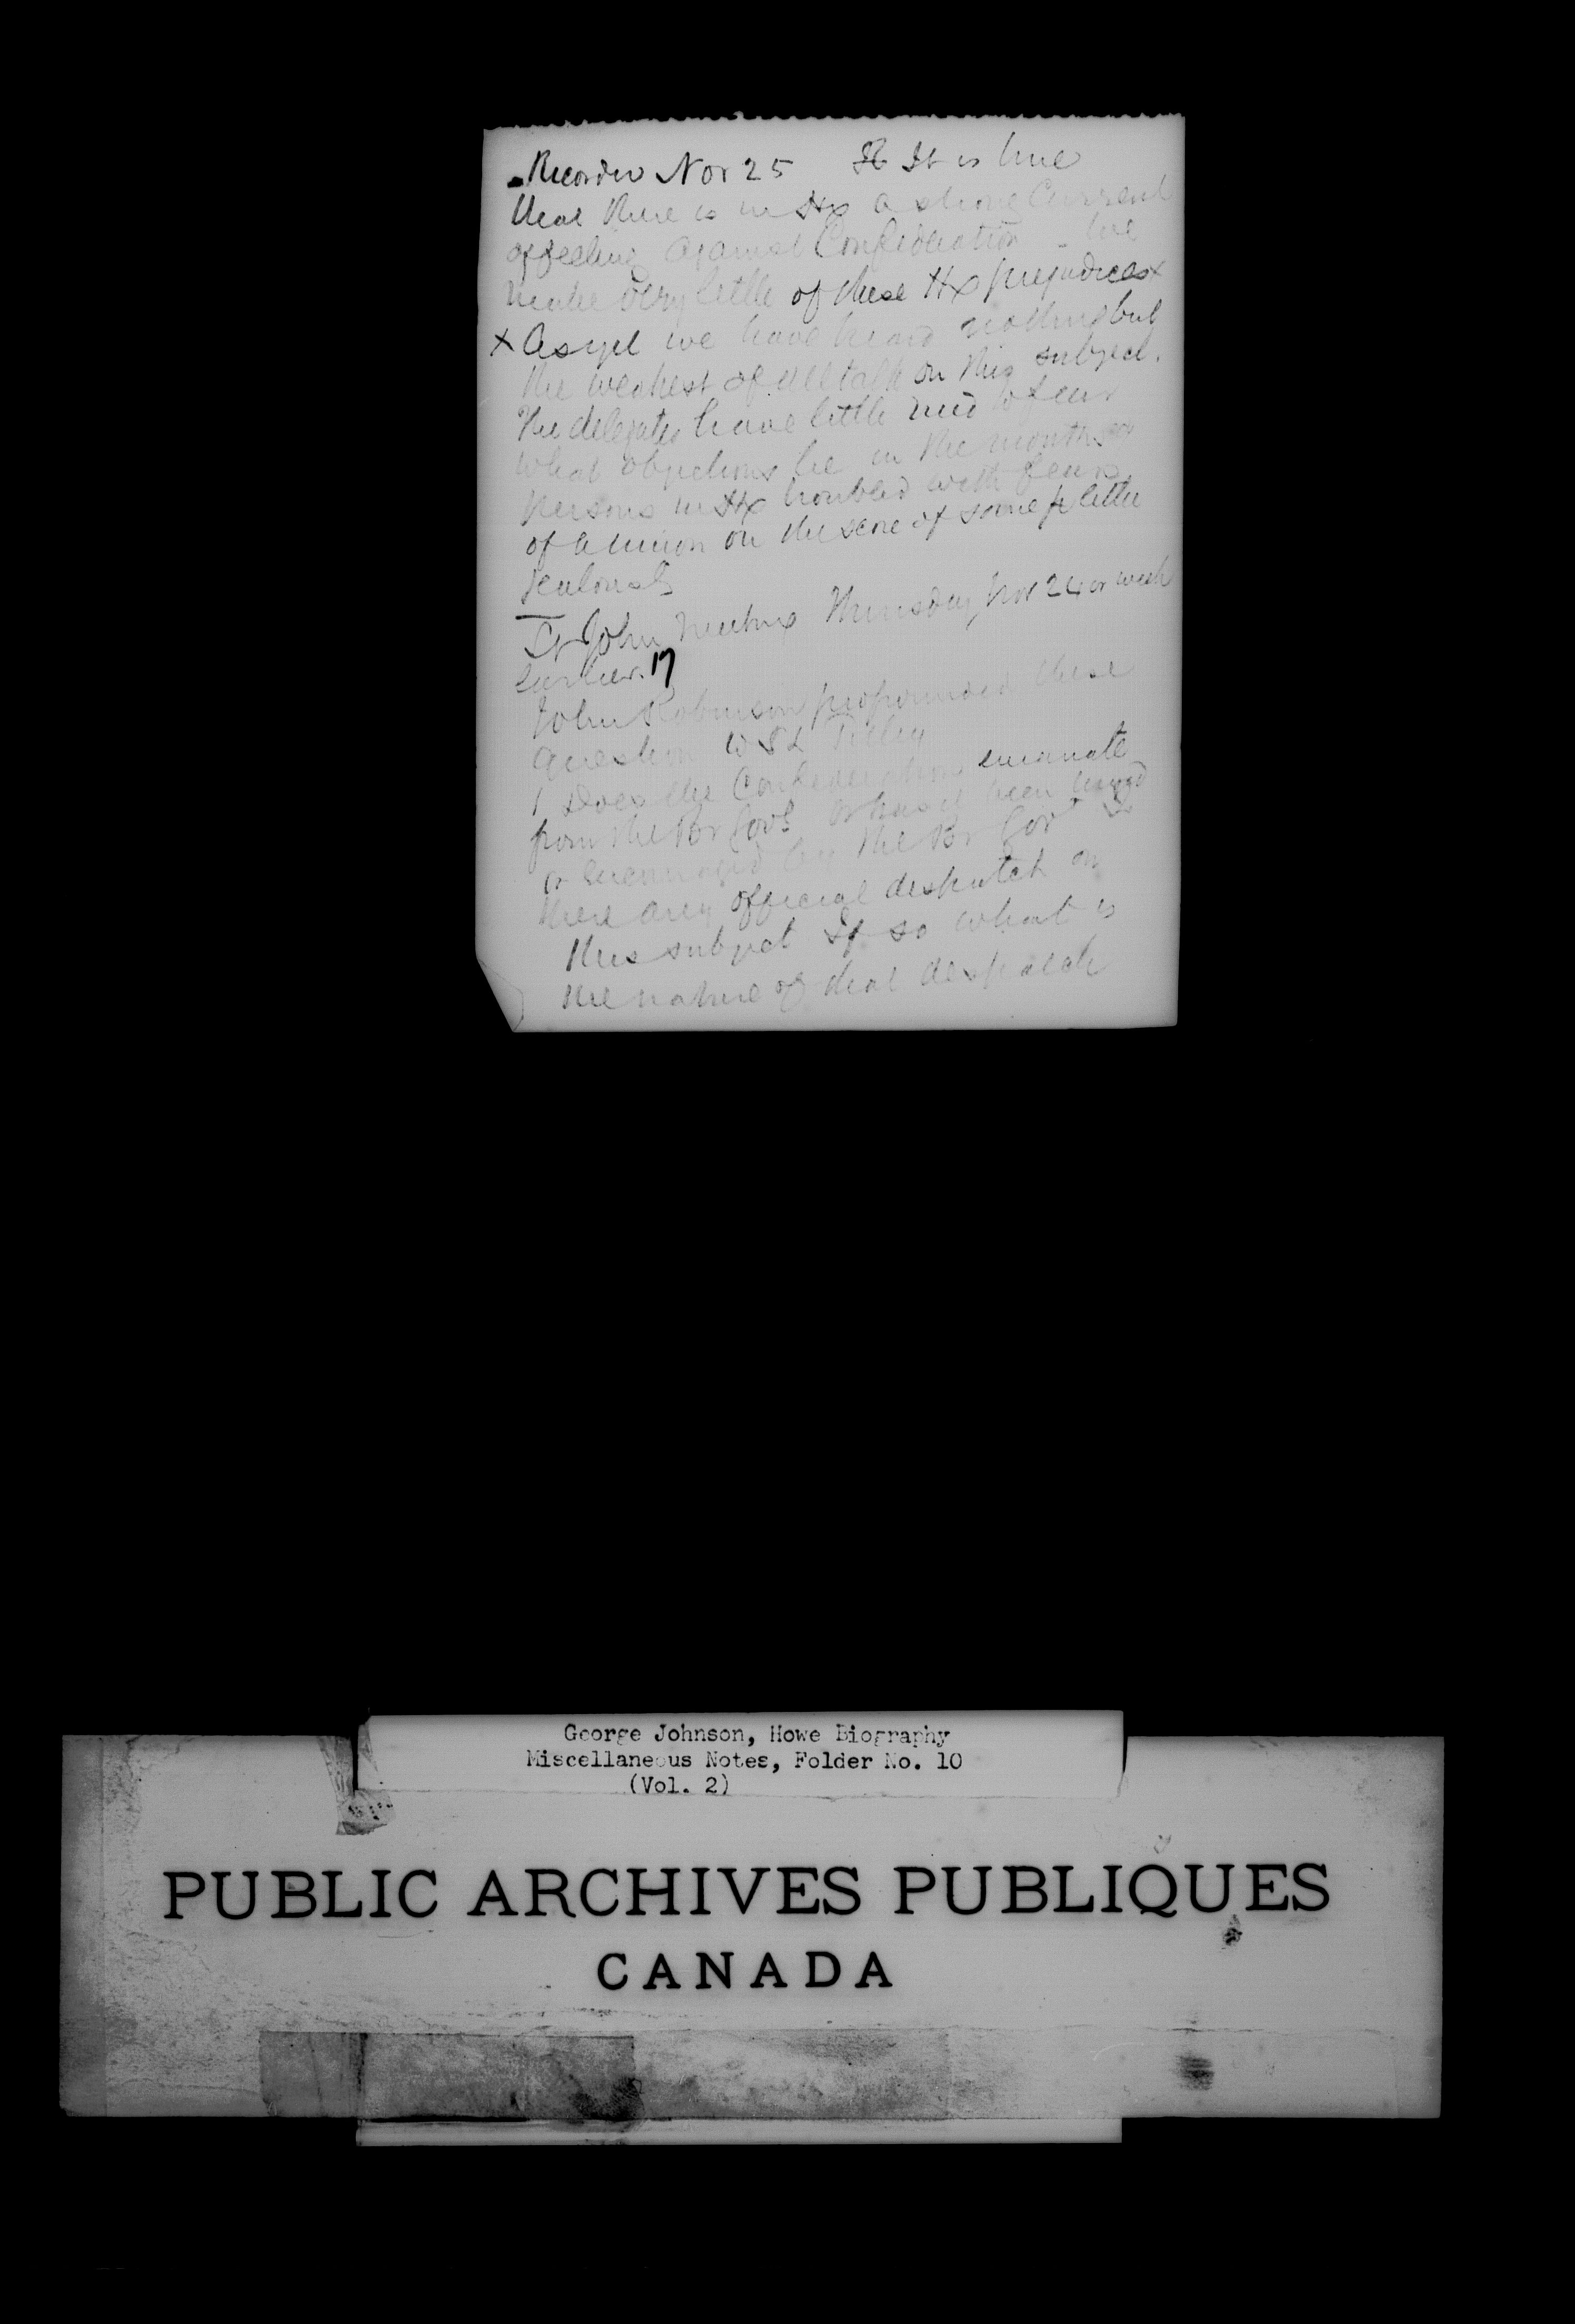 Recorder Nov 25 If It is true
that there is in Hx a strong Current
of feeling against Confederation - We
make very little of these Hx prejudices x
x As yet we have heard nothing but
the weakest of all talk on this subject.
The delegates have little need to fear
what objections lie in the mouths of
persons in Hx troubled with fears
of a union on the score of some little
jealousies
St John Meeting Thursday Nov 24 or week
Earlier. 17
John Robinson propounded these
question to S L Tilley
1 Does the Confederation emanate
from the Br Govt or has it been urged
or encouraged by the Br Govt Is
there any official despatch on
this subject If so what is
the nature of that despatch
George Johnson, Howe Biography
Miscellaneous Notes, Folder No. 10
(Vol. 2)
PUBLIC ARCHIVES PUBLIQUES
CANADA